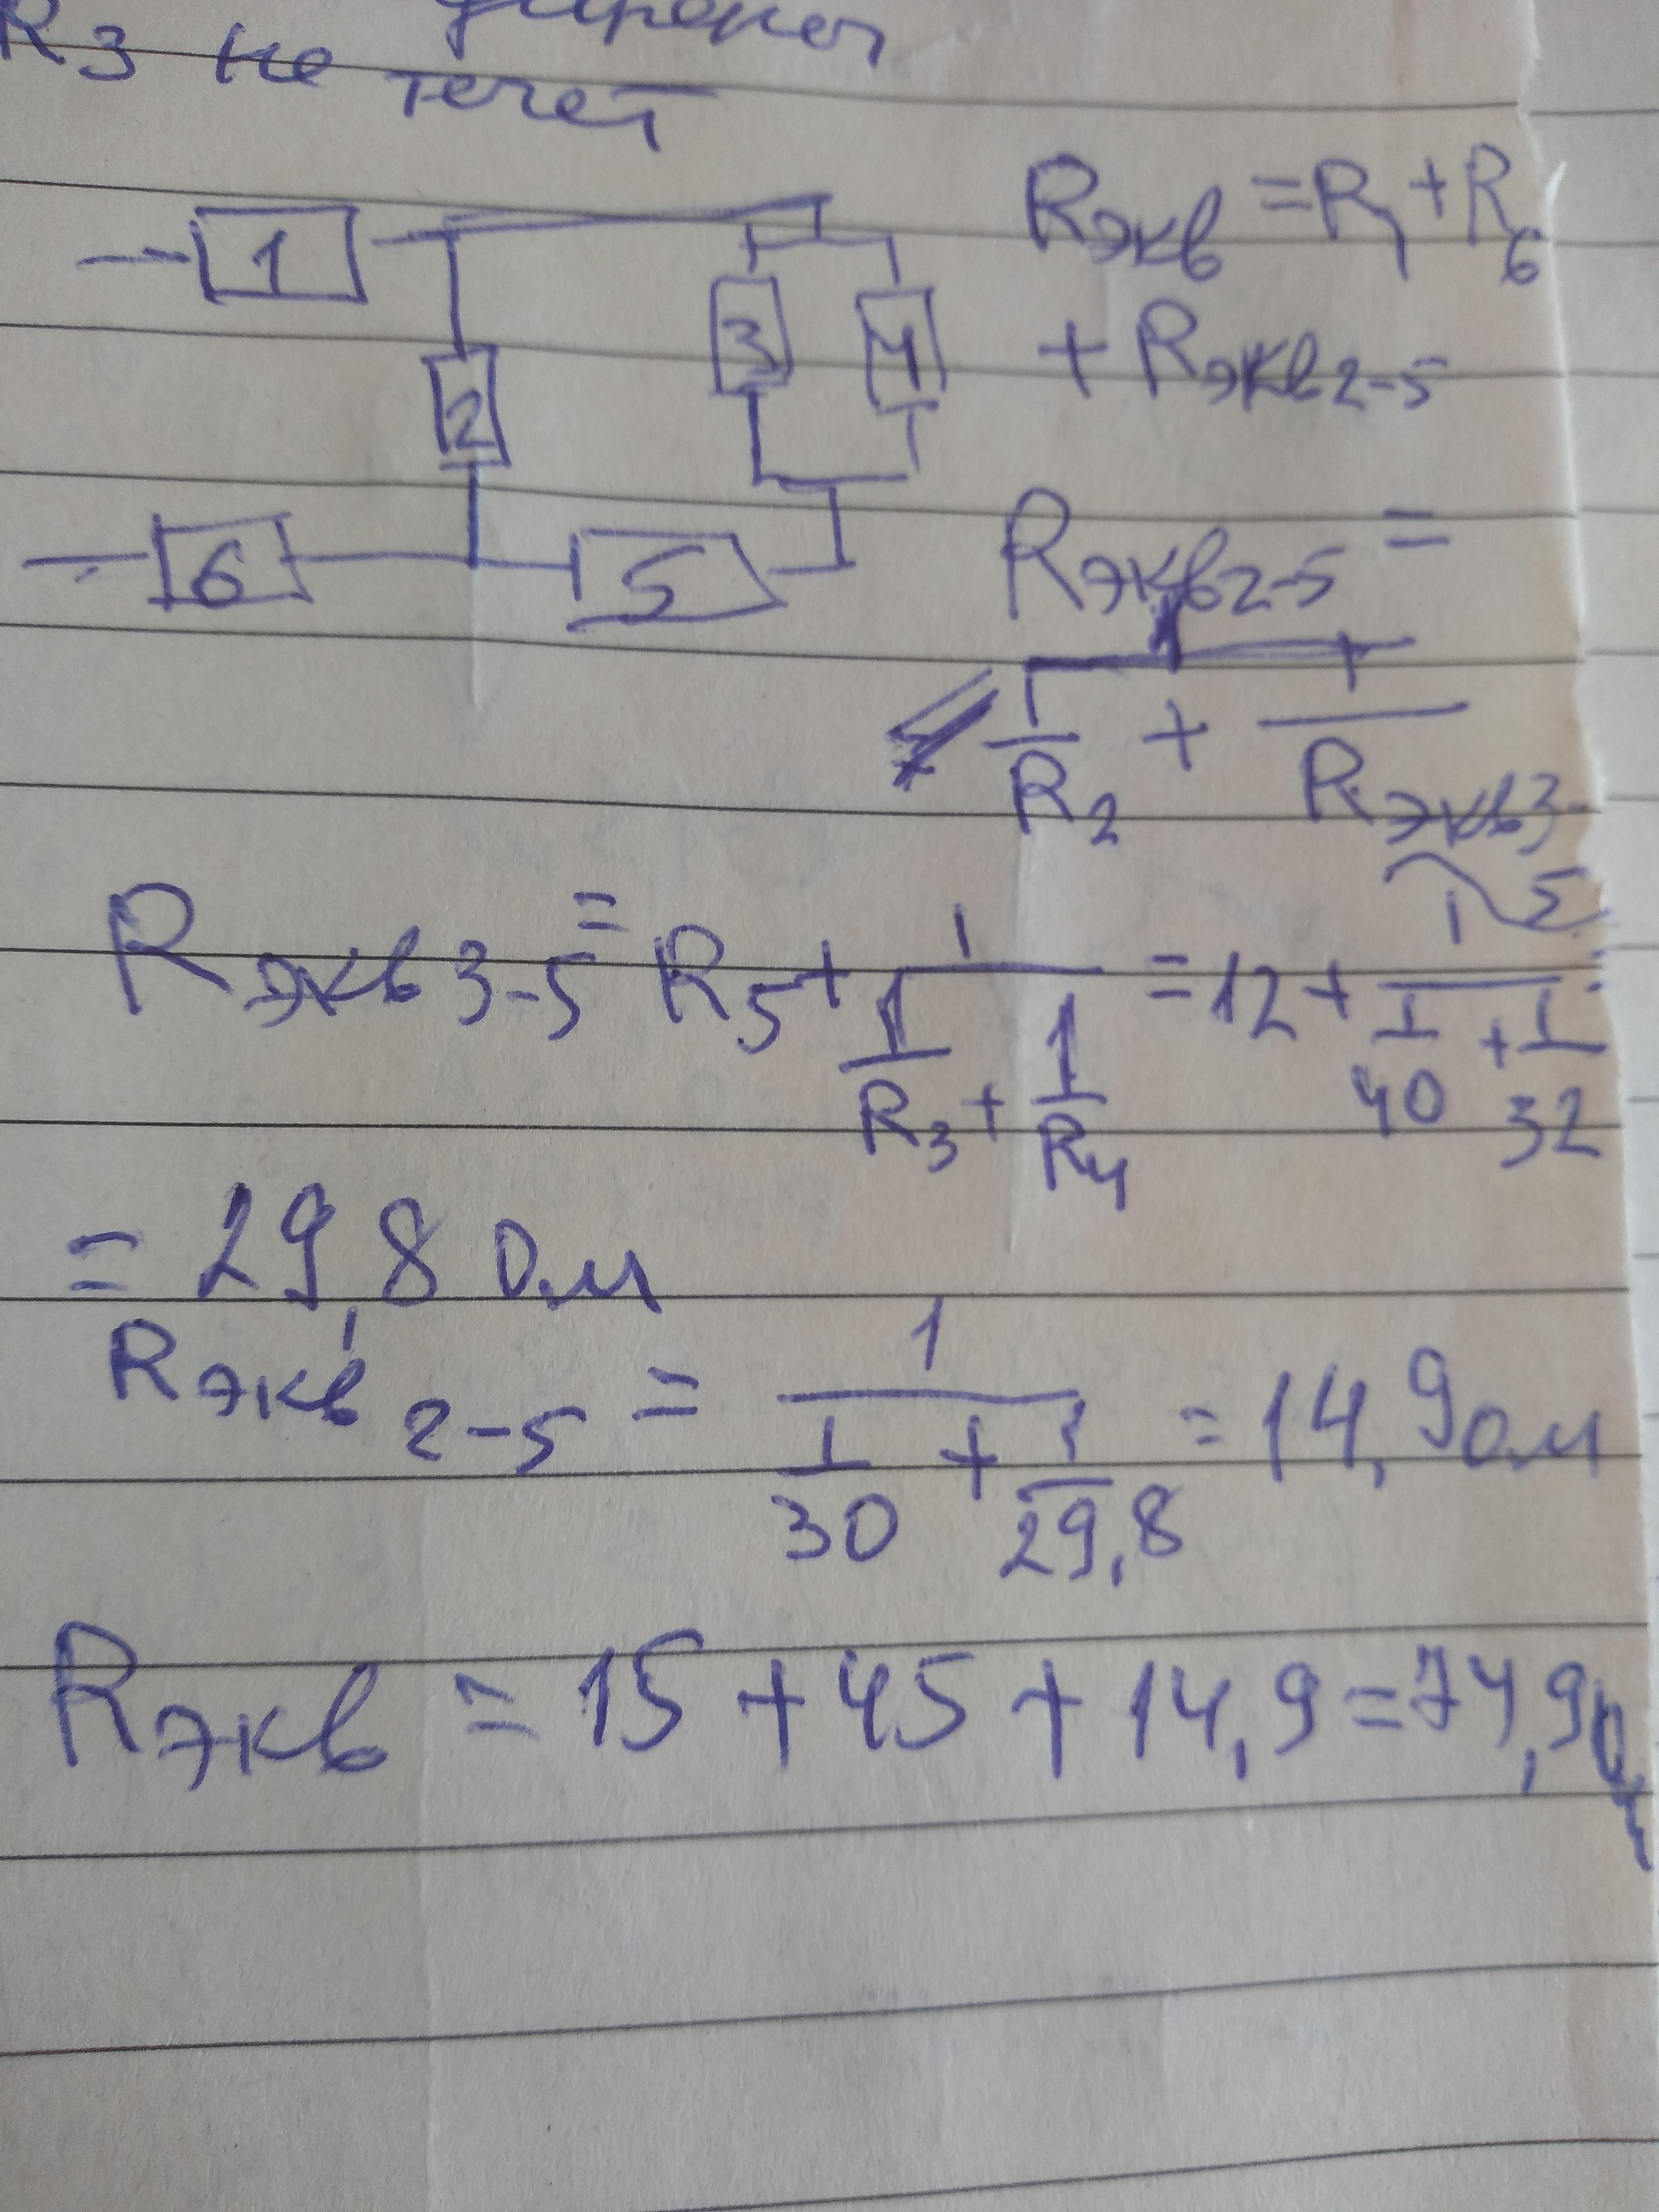 R3 не течёт
1
Rэкв = R1 + R6
3 4
+ Rэкв2-5
2
6 5
Rэкв2-5 =
1
1/R2 + 1/Rэкв3-5
Rэкв3-5 = R5 + 1/(1/R3 + 1/R4) = 12 + 1/(1/40 + 1/32) =
= 29,8 Ом
Rэкв2-5 = 1/(1/30 + 1/29,8) = 14,9 Ом
Rэкв = 15 + 45 + 14,9 = 74,9 Ом